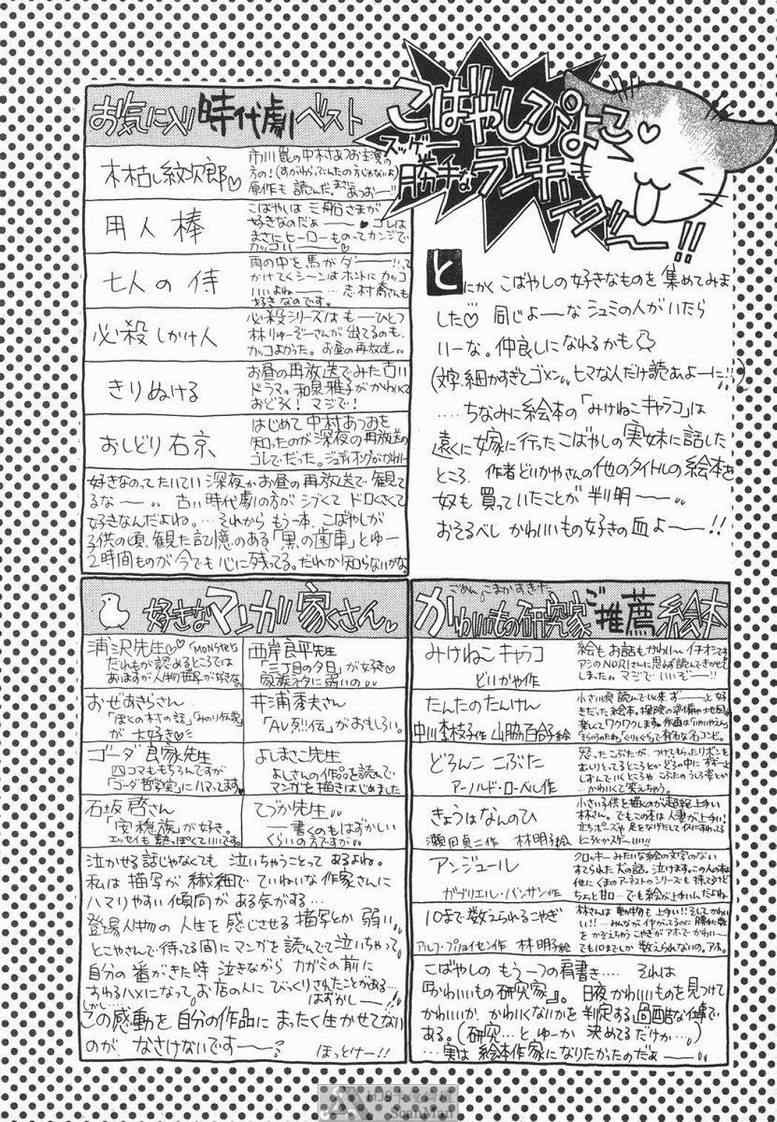 こばやしぴよこ♡
勝手な
ランキーング〜!!
とにかく こばやしの好きなものを 集めてみま
した♡ 同じよーな シュミの人がいたら
いーな。仲良しになれるかも
(文字、細かすぎてゴメン。ヒマな人だけ読あよーに!!)
....ちなみに絵本の「みけねこキャラコ」は
遠くに嫁に行ったこばやしの実妹に話した
ところ、作者どいかやさんの他のタイトルの絵本を
奴も買っていたことが判明——。
おそるべし かわいいもの好きの血よ——!!
お気に入り時代劇ベスト
木枯し紋次郎♡
原作も読んだ
用人棒
こばやしは三船さまが
好きなのだぁ——
まさにヒーローものってカンジで
カッコいい——
七人の侍
雨の中を馬がダー——!って
かけてくシーンはホントにカッコ
いいよね——。志村喬さんも
好きなのです。
必殺しかけ人
必殺シリーズはもーひとつ
林りゅーぞーさんが出てるのも、
カッコよかった。お昼の再放送。
きりぬける
お昼の再放送でみた古い
ドラマ。和泉雅子がかわいくて
おどろく!マジで!
おしどり右京
はじめて中村あつおを
知ったのが深夜の再放送の
コレでだった。ジュディ・オングがかわいー
好きなのってたいてい深夜かお昼の再放送で観て
るな——。古い時代劇の方がシブくてドロくさくて
好きなんだよね。…それからもう一本、こばやしが
子供の頃、観た記憶のある「黒の歯車」とゆー
2時間ものが今でも心に残ってる。だれか知らないかな。
好きなマンガ家くさん
浦沢先生♡「MONSTER」
だれもが認めるところでは
ありますが人物の世界が好きな。
西岸良平先生
「三丁目の夕日」が好き♡
家族ネタに弱いの
おぜあきらさん
「ぼくの村の話」「みのり伝説」
が大好き♡
井浦秀夫さん
「AV烈伝」がおもしろい。
ゴーダ良家先生
四コマももちろんですが
「ゴーダ哲学堂」にハマってます
よしまさこ先生
よしさんの作品を読んで
マンガを描きはじめました
石坂啓さん
「安穏族」が好き。
エッセイも熱っぽくていいです。
てづか先生
——書くのもはずかしい
くらいの方ですが
泣かせる話じゃなくても 泣いちゃうことってあるよね。
私は描写が繊細でていねいな作家さんに
ハマりやすい傾向がある気がする…
登場人物の人生を感じさせる描写とか弱い。
とこやさんで待ってる間にマンガを読んでて泣いちゃって
自分の番がきた時 泣きながらカガミの前に
すわるハメになって。お店の人にびっくりされたことがある…
しかし… はずかし——!!
この感動を自分の作品にまったく生かせてない
のが なさけないです——? ほっとけー!!
ごめん、こまかすぎた。
かわいいもの研究家ご推薦絵本
みけねこキャラコ
どいかや作
絵もお話もかわいー イチオシです
たんたのたんけん
中川李枝子作 山脇百合子絵
どろんこ こぶた
アーノルド・ローベル作
きょうはなんのひ
瀬田貞二作 林明子絵
アンジュール
ガブリエル・バンサン作
10まで数えられるこやぎ
アルフ・プリョイセン作 林明子絵
こばやしのもう一つの肩書き…. それは
『かわいいもの研究家』。日夜かわいいものを見つけて
かわいいか、かわいくないかを判定する過酷な仕事で
ある。(研究…とゆーか 決めてるだけか…)
…実は 絵本作家になりたかったのだぁ——